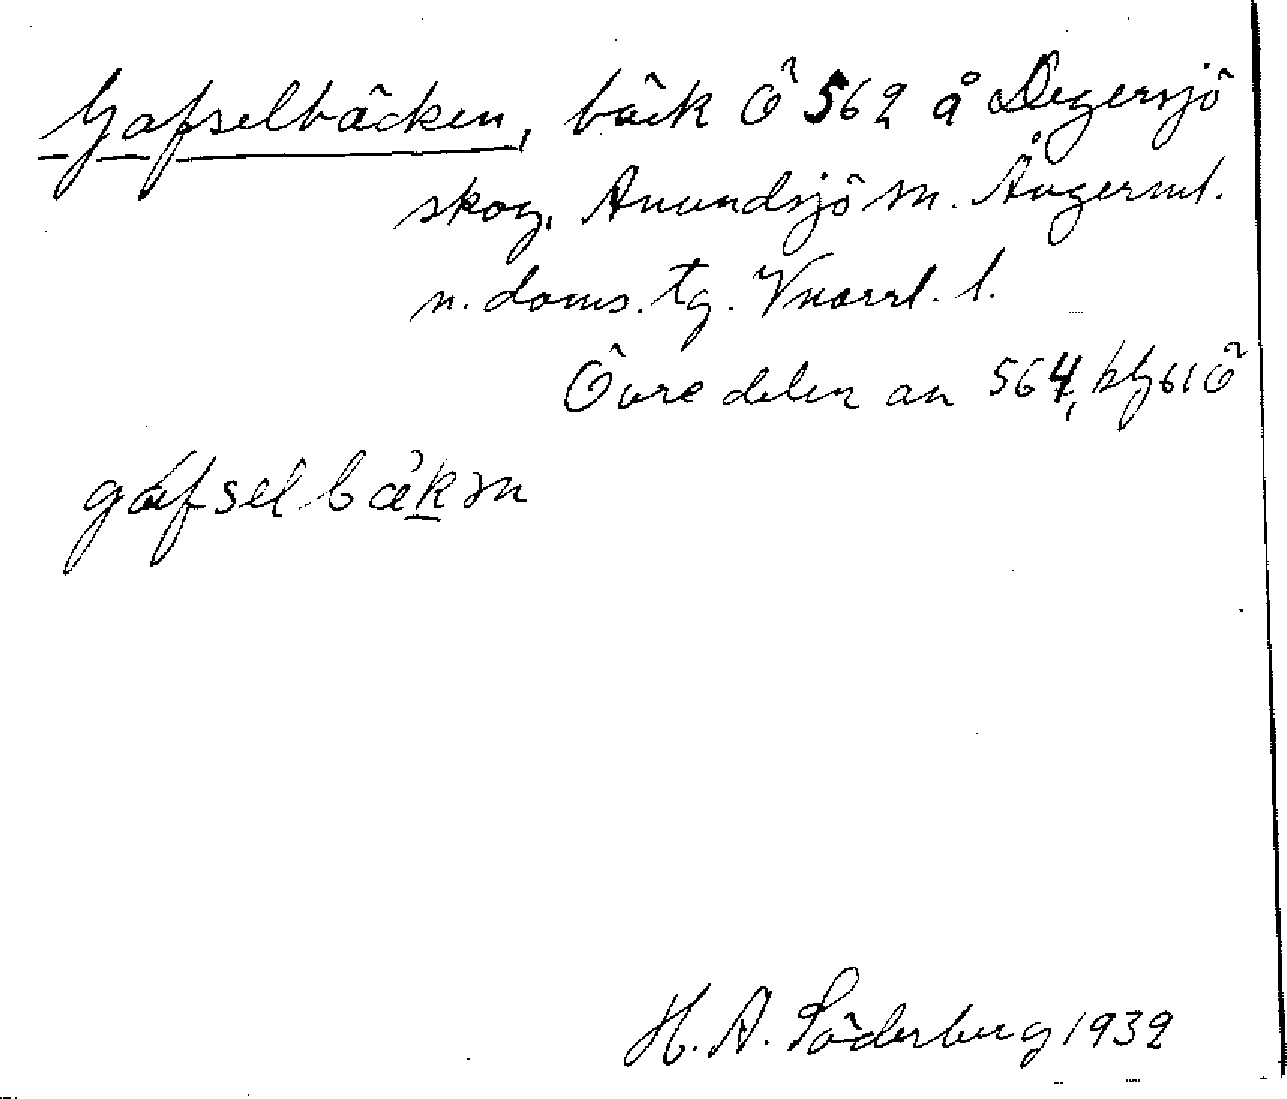 Gafselbäcken, bäck Ö 562 å Degersjö
skog, Anundsjö sn. Ångerml.
n. doms. tg. Vnorrl. l.
Övre delen av 564, blg 61 Ö
gáfselbäkm
H. A. Söderberg 1932